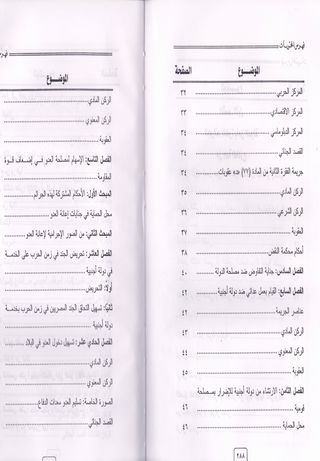 فهرس المحتويات
الموضوع الصفحة
المركز الحربي ٣٢
المركز الاقتصادي ٣٣
المركز الدبلوماسي ٣٤
القصد الجنائي ٣٤
جريمة الفقرة الثانية من المادة (٧٧) ده عقوبات ٣٤
الركن المادي ٣٥
الركن الشرعي ٣٦
العقوبة ٣٧
أحكام محكمة النقض ٣٨
الفصل السادس: جناية التفاوض ضد مصلحة الدولة ٤٠
الفصل السابع: القيام بعمل عدائي ضد دولة أجنبية ٤٢
عناصر الجريمة ٤٢
الركن المادي ٤٣
الركن المعنوي ٤٤
العقوبة ٤٥
الفصل الثامن: الارتشاء من دولة أجنبية للإضرار بمصلحة
قومية ٤٦
محل الحماية ٤٦
٢٨٨
الموضوع
الركن المادي
الركن المعنوي
العقوبة
الفصل التاسع: الإسهام لمصلحة العدو في إضعاف قوة
المقاومة
المبحث الأول: الأحكام المشتركة لهذه الجرائم
محل الحماية في جنايات إعانة العدو
المبحث الثاني: من الصور الإجرامية لإعانة العدو
الفصل العاشر: تحريض الجند في زمن الحرب على الخدمة
في دولة أجنبية
أولاً: التحريض
ثانياً: تسهيل التحاق الجند المصريين في زمن الحرب بخدمة
دولة أجنبية
الفصل الحادي عشر: تسهيل دخول العدو في البلاد
الركن المادي
الركن المعنوي
الصورة الخاصة: تسليم العدو معدات الدفاع
القصد الجنائي